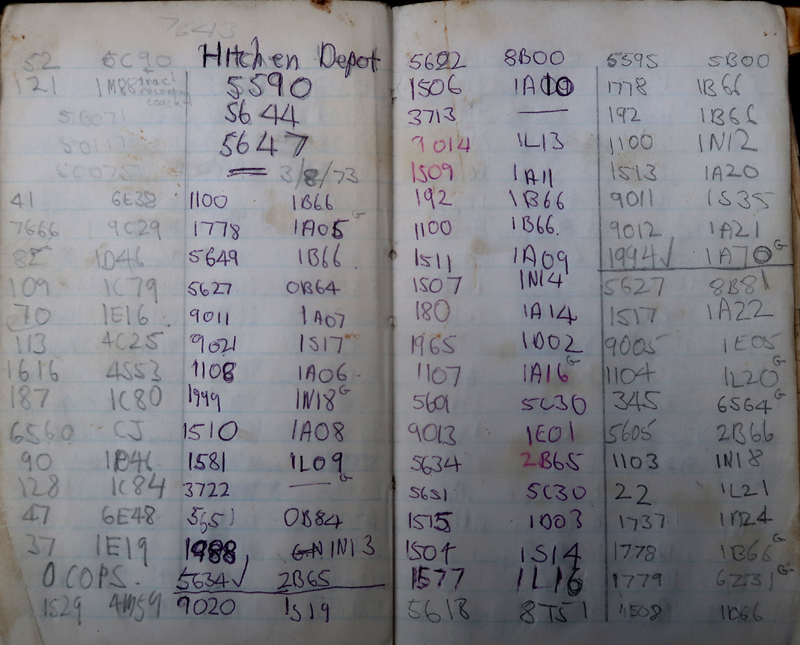 7643
52 6C90
121 1M88
41 6E38
7666 9C29
1D46
109 1C79
70 1E16
113 4C25
1616 4S53
187 1C80
6560 CJ
90 1D46
128 1C84
47 6E48
37 1E19
O COPS.
1529 4M59
Hitchen Depot
5590
5644
5647
3/8/73
1100 1B66
1778 1A05 G
5649 1B66
5627 0B64
9011 1A07
9021 1S17
1108 1A06
1949 1N18 G
1510 1A08
1581 1L09
3722 — G
5651 0B84
1988 1N13
5634 ✓ 2B65
9020 1S19
5622 8B00
1506 1A10
3713 —
9014 1L13
1509 1A11
192 1B66
1100 1B66.
1511 1A09
1507 1N14
180 1A14
1965 1D02
1107 1A16 G
5601 5C30
9013 1E01
5634 2B65
5651 5C30
1515 1D03
1504 1S14
1577 1L16
5618 8T51
5595 5B00
1778 1B66
192 1B66
1100 1N12
1513 1A20
9011 1S35
9012 1A21
1994 ✓ 1A70 G
5627 8B81
1517 1A22
9005 1E05
1104 1L20 G
345 6S64 G
5605 2B66
1103 1N18
22 1L21
1737 1A24
1778 1B66 G
1779 6Z31 G
1508